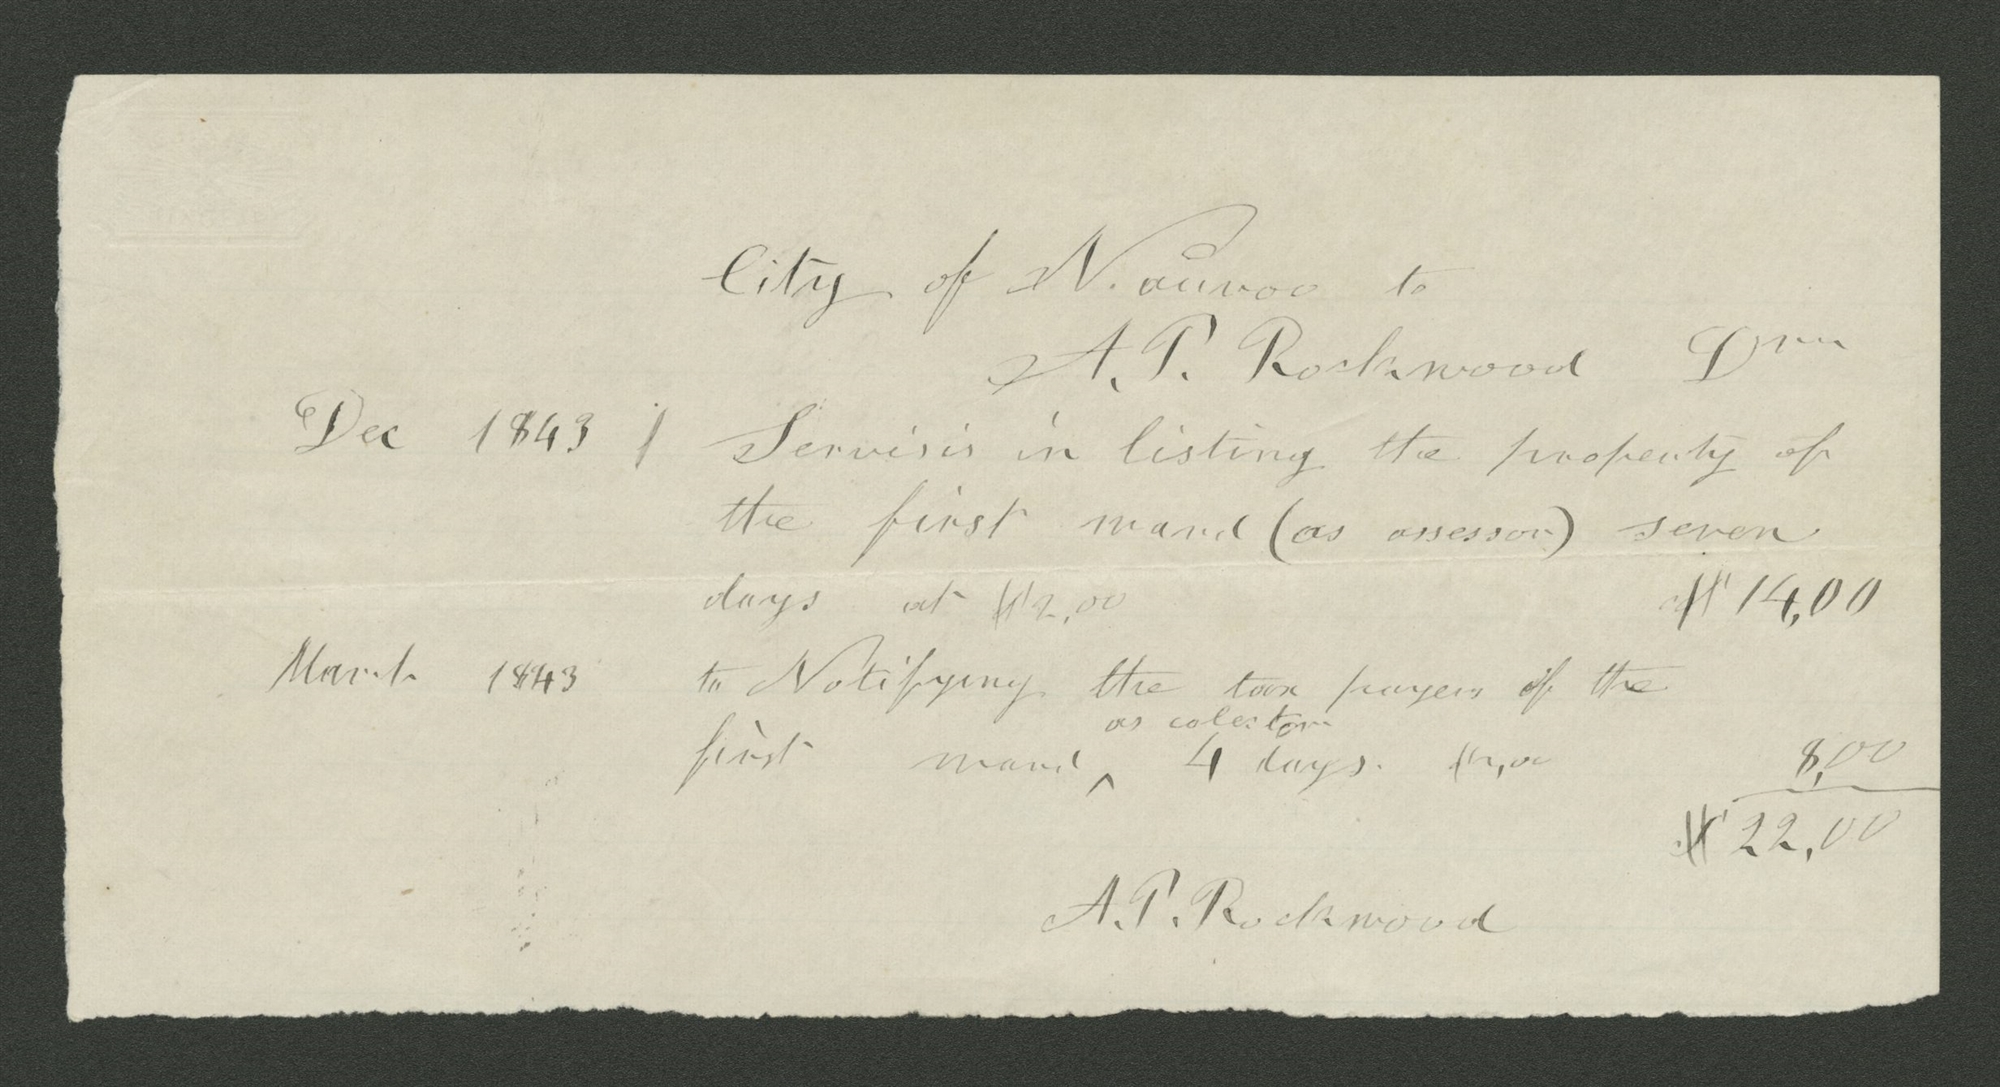 City of Nauvoo to
A. P. Rockwood Drm
Dec 1843 Servisis in listing the property of
the first ward (as assessor) seven
days at $2,00 $14,00
March 1843 to Notifying the tax payers of the
as colector
first ward ^ 4 days. $2,00 8,00
$22,00
A. P. Rockwood